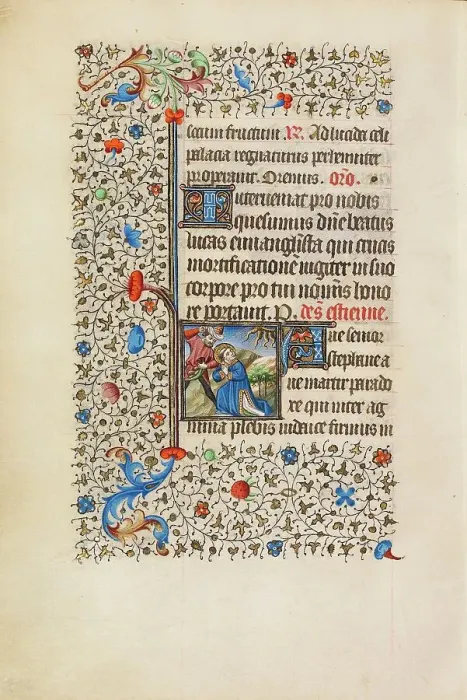 secum fructum. V. Ad lucide celi
palacia regnaturus perhenniter
properauit. Oremus. oro.
Interueniat pro nobis
quesumus dñe beatus
lucas euuangłista qui crucis
mortificationē iugiter in suo
corpore pro tui nomīs hono
re portauit. P. des estienne.
Aue senior
stephane a
ue martir parado
xe qui inter ag
mina plebis iudaice firmus in